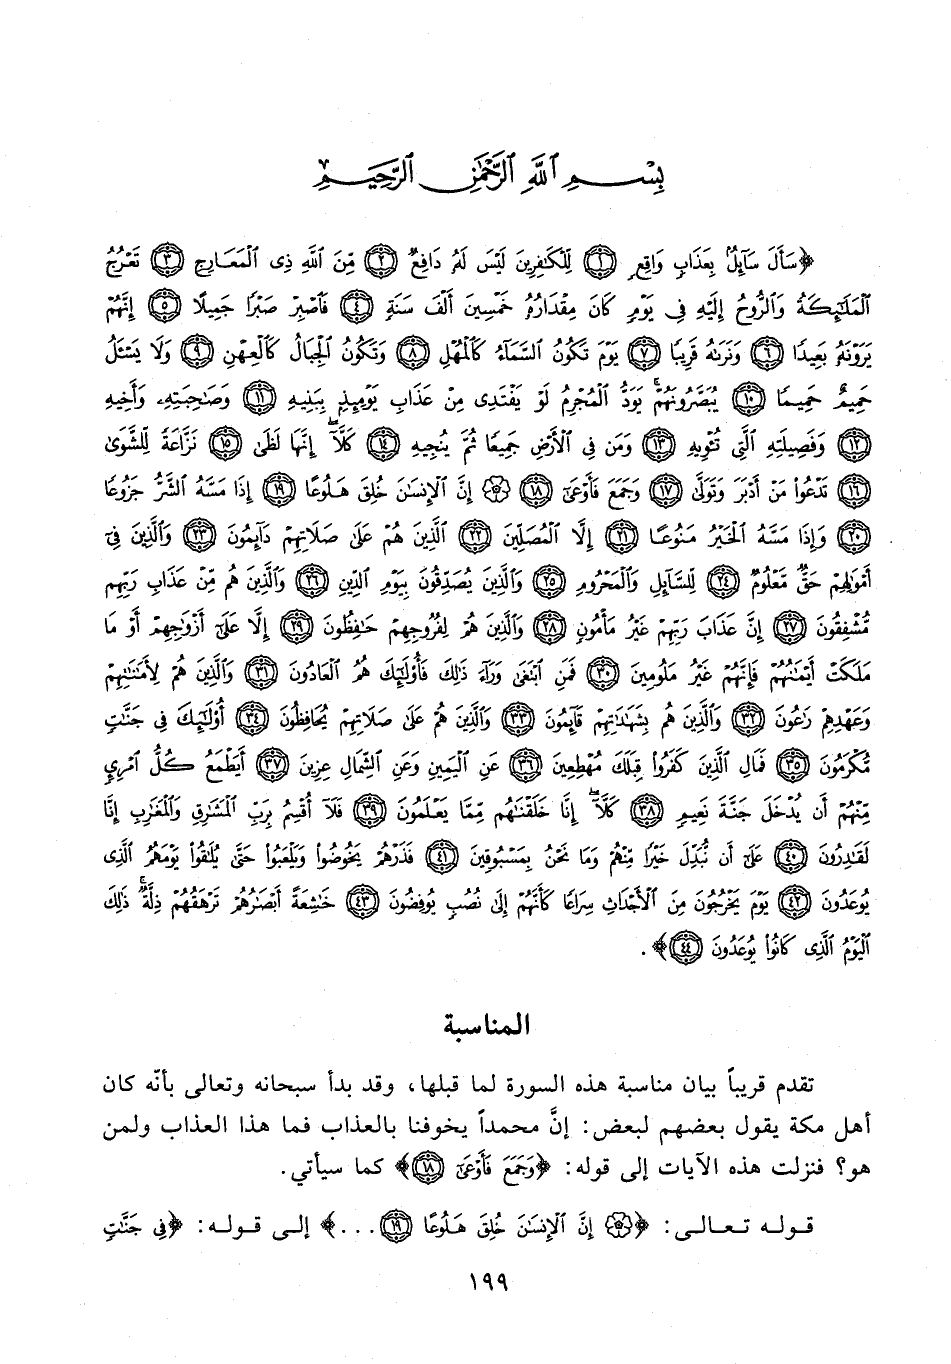 بِسْمِ ٱللَّهِ ٱلرَّحْمَٰنِ ٱلرَّحِيمِ
﴿سَأَلَ سَآئِلٌۢ بِعَذَابٍ وَاقِعٍ ﴿١﴾ لِّلْكَٰفِرِينَ لَيْسَ لَهُۥ دَافِعٌ ﴿٢﴾ مِّنَ ٱللَّهِ ذِى ٱلْمَعَارِجِ ﴿٣﴾ تَعْرُجُ
ٱلْمَلَٰٓئِكَةُ وَٱلرُّوحُ إِلَيْهِ فِى يَوْمٍ كَانَ مِقْدَارُهُۥ خَمْسِينَ أَلْفَ سَنَةٍ ﴿٤﴾ فَٱصْبِرْ صَبْرًا جَمِيلًا ﴿٥﴾ إِنَّهُمْ
يَرَوْنَهُۥ بَعِيدًا ﴿٦﴾ وَنَرَىٰهُ قَرِيبًا ﴿٧﴾ يَوْمَ تَكُونُ ٱلسَّمَآءُ كَٱلْمُهْلِ ﴿٨﴾ وَتَكُونُ ٱلْجِبَالُ كَٱلْعِهْنِ ﴿٩﴾ وَلَا يَسْـَٔلُ
حَمِيمٌ حَمِيمًا ﴿١٠﴾ يُبَصَّرُونَهُمْ ۚ يَوَدُّ ٱلْمُجْرِمُ لَوْ يَفْتَدِى مِنْ عَذَابِ يَوْمِئِذٍۭ بِبَنِيهِ ﴿١١﴾ وَصَٰحِبَتِهِۦ وَأَخِيهِ
﴿١٢﴾ وَفَصِيلَتِهِ ٱلَّتِى تُـْٔوِيهِ ﴿١٣﴾ وَمَن فِى ٱلْأَرْضِ جَمِيعًا ثُمَّ يُنجِيهِ ﴿١٤﴾ كَلَّآ ۖ إِنَّهَا لَظَىٰ ﴿١٥﴾ نَزَّاعَةً لِّلشَّوَىٰ
﴿١٦﴾ تَدْعُوا۟ مَنْ أَدْبَرَ وَتَوَلَّىٰ ﴿١٧﴾ وَجَمَعَ فَأَوْعَىٰٓ ﴿١٨﴾ ۞ إِنَّ ٱلْإِنسَٰنَ خُلِقَ هَلُوعًا ﴿١٩﴾ إِذَا مَسَّهُ ٱلشَّرُّ جَزُوعًا
﴿٢٠﴾ وَإِذَا مَسَّهُ ٱلْخَيْرُ مَنُوعًا ﴿٢١﴾ إِلَّا ٱلْمُصَلِّينَ ﴿٢٢﴾ ٱلَّذِينَ هُمْ عَلَىٰ صَلَاتِهِمْ دَآئِمُونَ ﴿٢٣﴾ وَٱلَّذِينَ فِىٓ
أَمْوَٰلِهِمْ حَقٌّ مَّعْلُومٌ ﴿٢٤﴾ لِّلسَّآئِلِ وَٱلْمَحْرُومِ ﴿٢٥﴾ وَٱلَّذِينَ يُصَدِّقُونَ بِيَوْمِ ٱلدِّينِ ﴿٢٦﴾ وَٱلَّذِينَ هُم مِّنْ عَذَابِ رَبِّهِم
مُّشْفِقُونَ ﴿٢٧﴾ إِنَّ عَذَابَ رَبِّهِمْ غَيْرُ مَأْمُونٍ ﴿٢٨﴾ وَٱلَّذِينَ هُمْ لِفُرُوجِهِمْ حَٰفِظُونَ ﴿٢٩﴾ إِلَّا عَلَىٰٓ أَزْوَٰجِهِمْ أَوْ مَا
مَلَكَتْ أَيْمَٰنُهُمْ فَإِنَّهُمْ غَيْرُ مَلُومِينَ ﴿٣٠﴾ فَمَنِ ٱبْتَغَىٰ وَرَآءَ ذَٰلِكَ فَأُو۟لَٰٓئِكَ هُمُ ٱلْعَادُونَ ﴿٣١﴾ وَٱلَّذِينَ هُمْ لِأَمَٰنَٰتِهِمْ
وَعَهْدِهِمْ رَٰعُونَ ﴿٣٢﴾ وَٱلَّذِينَ هُم بِشَهَٰدَٰتِهِمْ قَآئِمُونَ ﴿٣٣﴾ وَٱلَّذِينَ هُمْ عَلَىٰ صَلَاتِهِمْ يُحَافِظُونَ ﴿٣٤﴾ أُو۟لَٰٓئِكَ فِى جَنَّٰتٍ
مُّكْرَمُونَ ﴿٣٥﴾ فَمَالِ ٱلَّذِينَ كَفَرُوا۟ قِبَلَكَ مُهْطِعِينَ ﴿٣٦﴾ عَنِ ٱلْيَمِينِ وَعَنِ ٱلشِّمَالِ عِزِينَ ﴿٣٧﴾ أَيَطْمَعُ كُلُّ ٱمْرِئٍ
مِّنْهُمْ أَن يُدْخَلَ جَنَّةَ نَعِيمٍ ﴿٣٨﴾ كَلَّآ ۖ إِنَّا خَلَقْنَٰهُم مِّمَّا يَعْلَمُونَ ﴿٣٩﴾ فَلَآ أُقْسِمُ بِرَبِّ ٱلْمَشَٰرِقِ وَٱلْمَغَٰرِبِ إِنَّا
لَقَٰدِرُونَ ﴿٤٠﴾ عَلَىٰٓ أَن نُّبَدِّلَ خَيْرًا مِّنْهُمْ وَمَا نَحْنُ بِمَسْبُوقِينَ ﴿٤١﴾ فَذَرْهُمْ يَخُوضُوا۟ وَيَلْعَبُوا۟ حَتَّىٰ يُلَٰقُوا۟ يَوْمَهُمُ ٱلَّذِى
يُوعَدُونَ ﴿٤٢﴾ يَوْمَ يَخْرُجُونَ مِنَ ٱلْأَجْدَاثِ سِرَاعًا كَأَنَّهُمْ إِلَىٰ نُصُبٍ يُوفِضُونَ ﴿٤٣﴾ خَٰشِعَةً أَبْصَٰرُهُمْ تَرْهَقُهُمْ ذِلَّةٌ ۚ ذَٰلِكَ
ٱلْيَوْمُ ٱلَّذِى كَانُوا۟ يُوعَدُونَ ﴿٤٤﴾﴾.
المناسبة
تقدم قريباً بيان مناسبة هذه السورة لما قبلها، وقد بدأ سبحانه وتعالى بأنّه كان
أهل مكة يقول بعضهم لبعض: إنَّ محمداً يخوفنا بالعذاب فما هذا العذاب ولمن
هو؟ فنزلت هذه الآيات إلى قوله: ﴿وَجَمَعَ فَأَوْعَىٰٓ ﴿١٨﴾﴾ كما سيأتي.
قوله تعالى: ﴿۞ إِنَّ ٱلْإِنسَٰنَ خُلِقَ هَلُوعًا ﴿١٩﴾...﴾ إلى قوله: ﴿فِى جَنَّٰتٍ
١٩٩